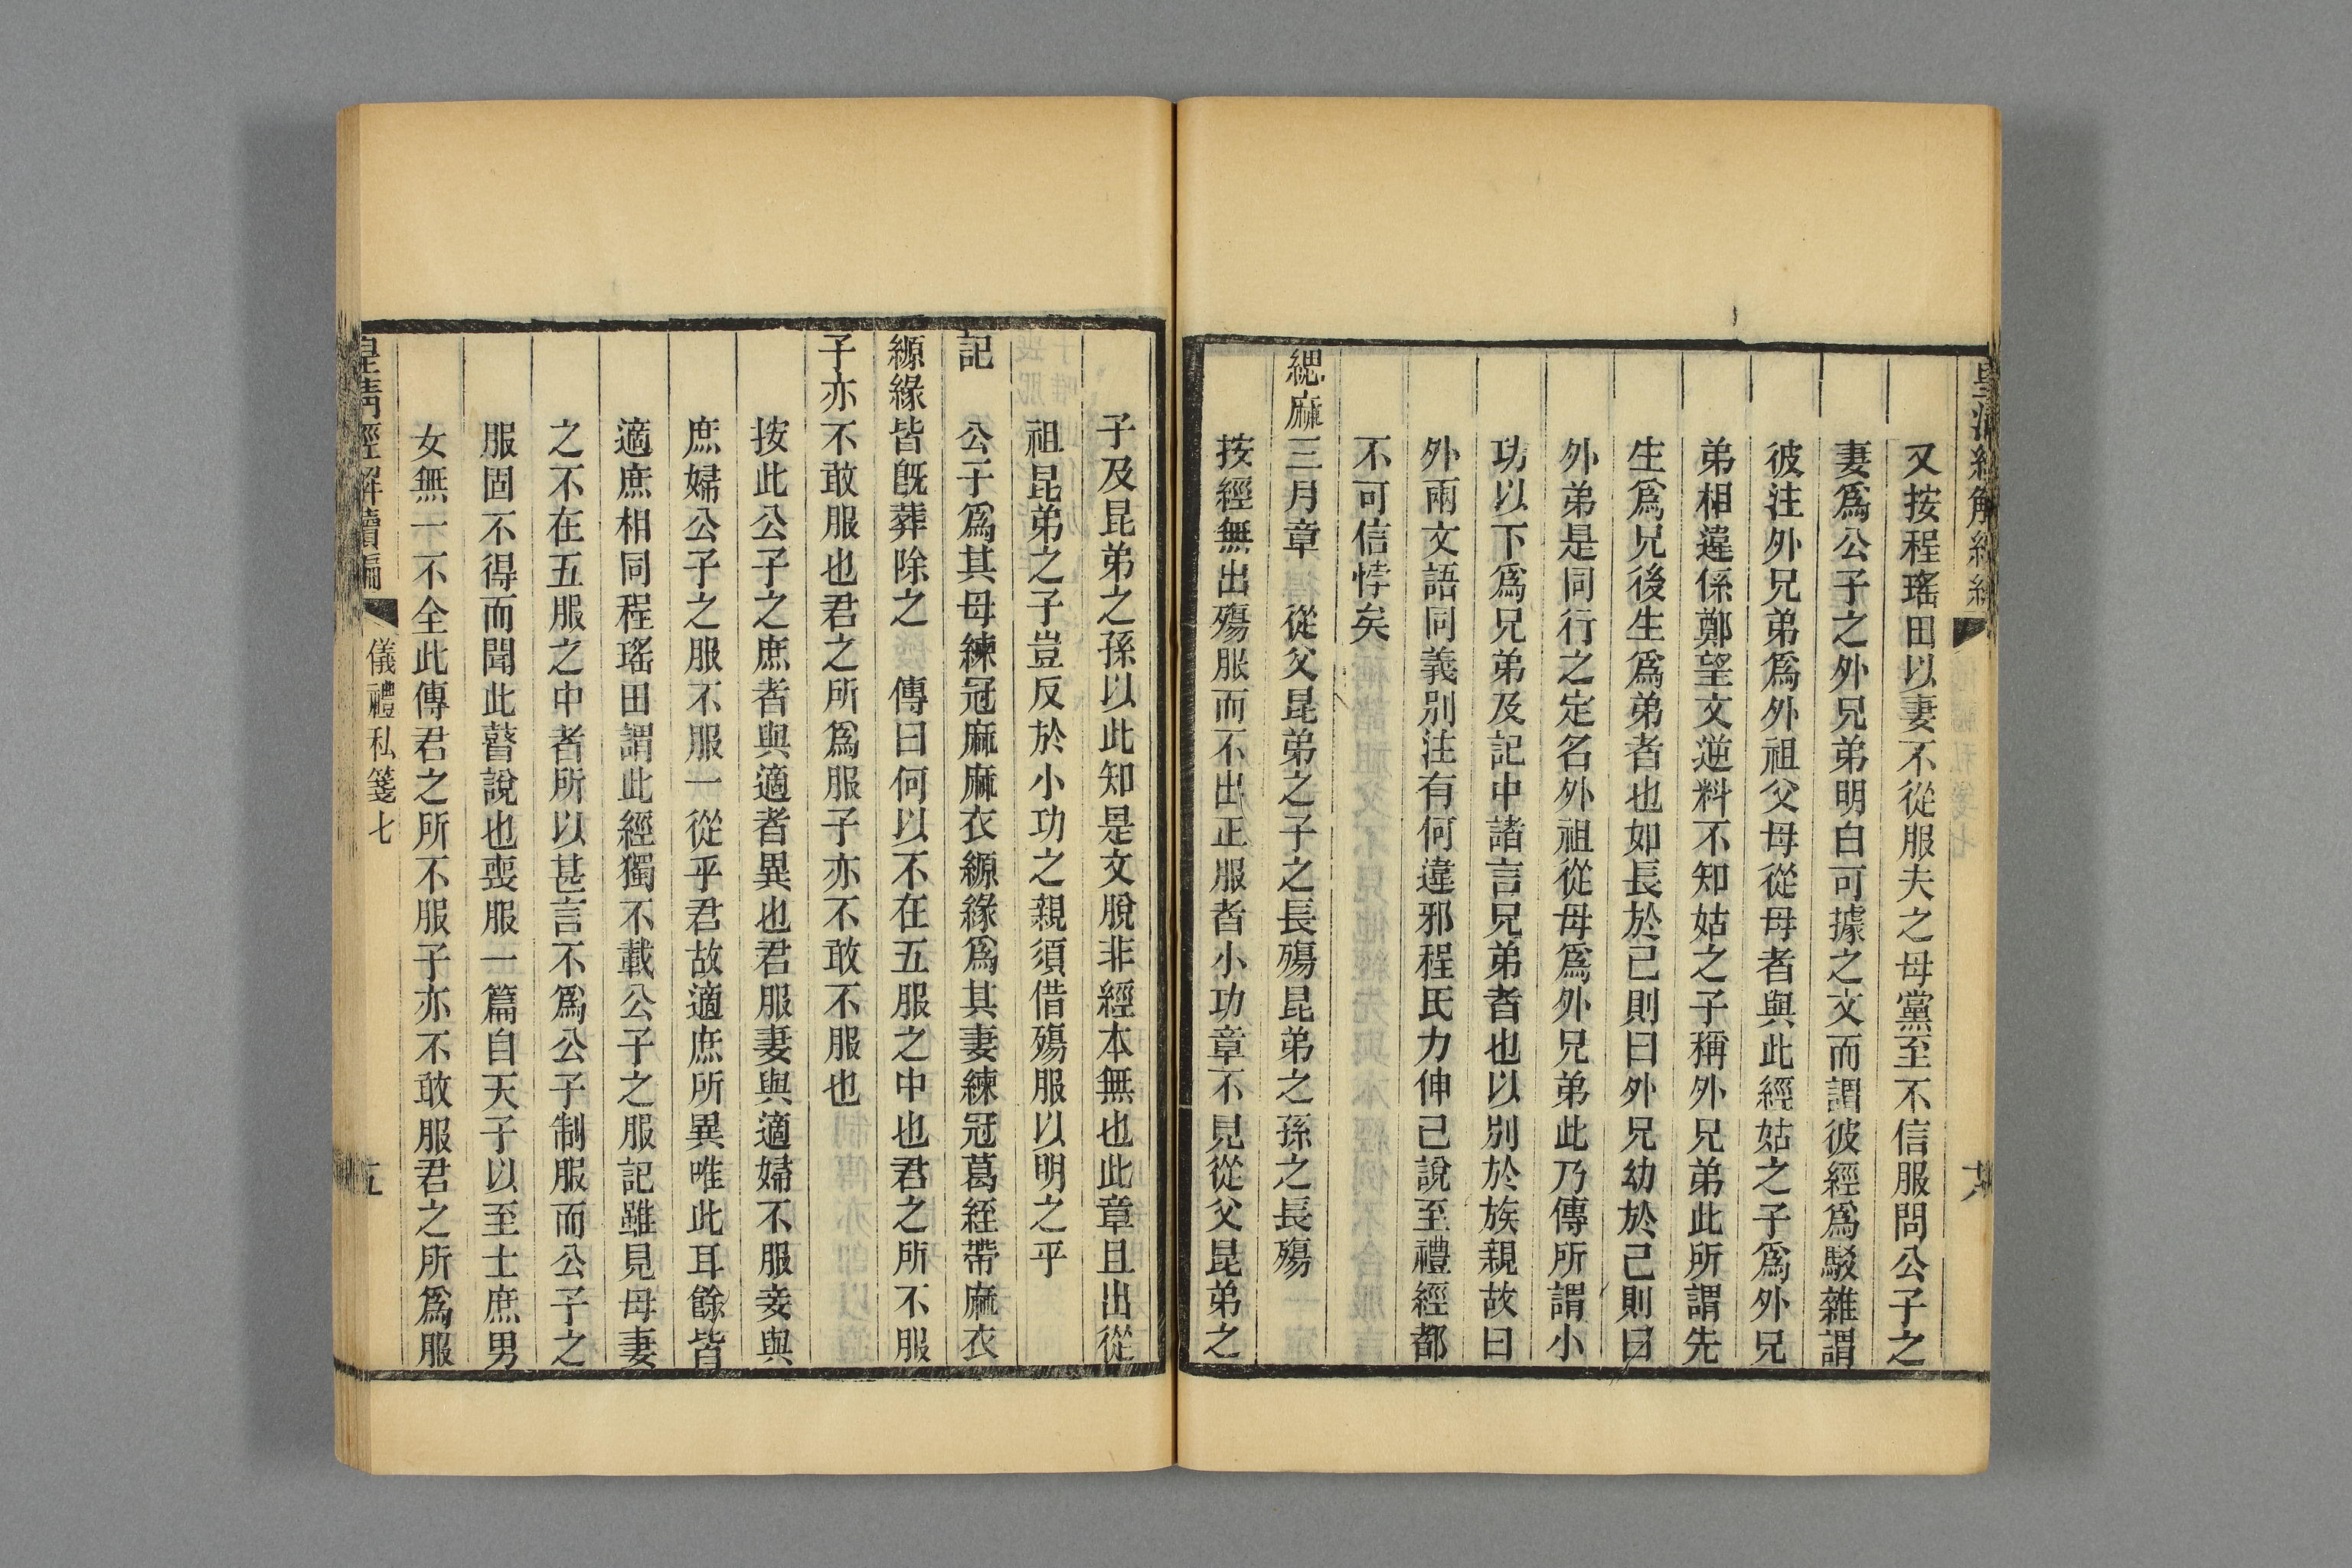 又按程瑤田以妻不從服夫之母黨至不信服問公子之
妻爲公子之外兄弟明白可據之文而謂彼經爲駁雜謂
彼注外兄弟爲外祖父母從母者與此經姑之子爲外兄
弟相違係鄭望文逆料不知姑之子稱外兄弟此所謂先
生爲兄後生爲弟者也如長於己則曰外兄幼於己則曰
外弟是同行之定名外祖從母爲外兄弟此乃傳所謂小
功以下爲兄弟及記中諸言兄弟者也以別於族親故曰
外兩文語同義別注有何違邪程氏力伸己說至禮經都
不可信悖矣
緦麻三月章 從父昆弟之子之長殤昆弟之孫之長殤
按經無出殤服而不出正服者小功章不見從父昆弟之
子及昆弟之孫以此知是文脫非經本無也此章且出從
祖昆弟之子豈反於小功之親須借殤服以明之乎
記 公子爲其母練冠麻麻衣縓緣爲其妻練冠葛絰帶麻衣
縓緣皆旣葬除之 傳曰何以不在五服之中也君之所不服
子亦不敢服也君之所爲服子亦不敢不服也
按此公子之庶者與適者異也君服妻與適婦不服妾與
庶婦公子之服不服一從乎君故適庶所異唯此耳餘皆
適庶相同程瑤田謂此經獨不載公子之服記雖見母妻
之不在五服之中者所以甚言不爲公子制服而公子之
服固不得而聞此瞽說也喪服一篇自天子以至士庶男
女無一不全此傳君之所不服子亦不敢服君之所爲服
皇淸經解續編
儀禮私箋七